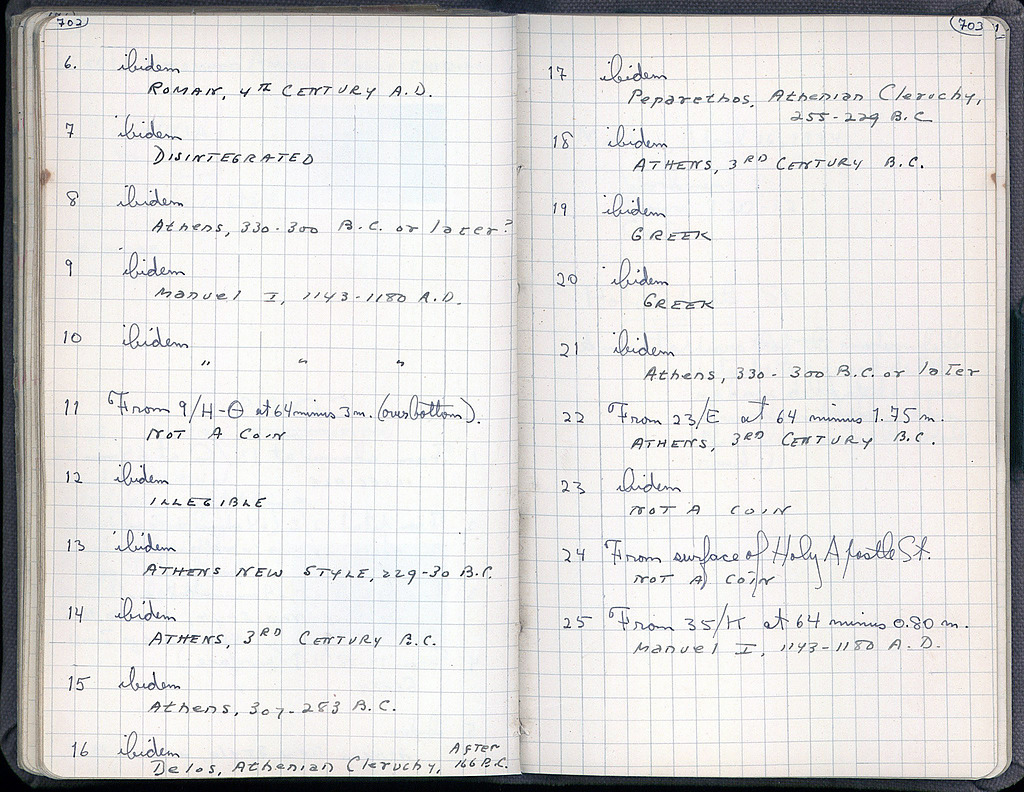 702
6. ibidem
ROMAN, 4TH CENTURY A.D.
7 ibidem
DISINTEGRATED
8 ibidem
Athens, 330-300 B.C. or later?
9 ibidem
Manuel I, 1143-1180 A.D.
10 ibidem
" " "
11 From 9/H-Θ at 64 minus 3 m. (over bottom).
NOT A COIN
12 ibidem
ILLEGIBLE
13 ibidem
ATHENS NEW STYLE, 229-30 B.C.
14 ibidem
ATHENS, 3RD CENTURY B.C.
15 ibidem
Athens, 307-283 B.C.
16 ibidem
Delos, Athenian Cleruchy, AFTER 166 B.C.
703
17 ibidem
Peparethos, Athenian Cleruchy,
255-229 B.C
18 ibidem
ATHENS, 3RD CENTURY B.C.
19 ibidem
GREEK
20 ibidem
GREEK
21 ibidem
Athens, 330-300 B.C. or later
22 From 23/E at 64 minus 1.75 m.
ATHENS, 3RD CENTURY B.C.
23 ibidem
NOT A COIN
24 From surface of Holy Apostle St.
NOT A COIN
25 From 35/K at 64 minus 0.80 m.
Manuel I, 1143-1180 A.D.